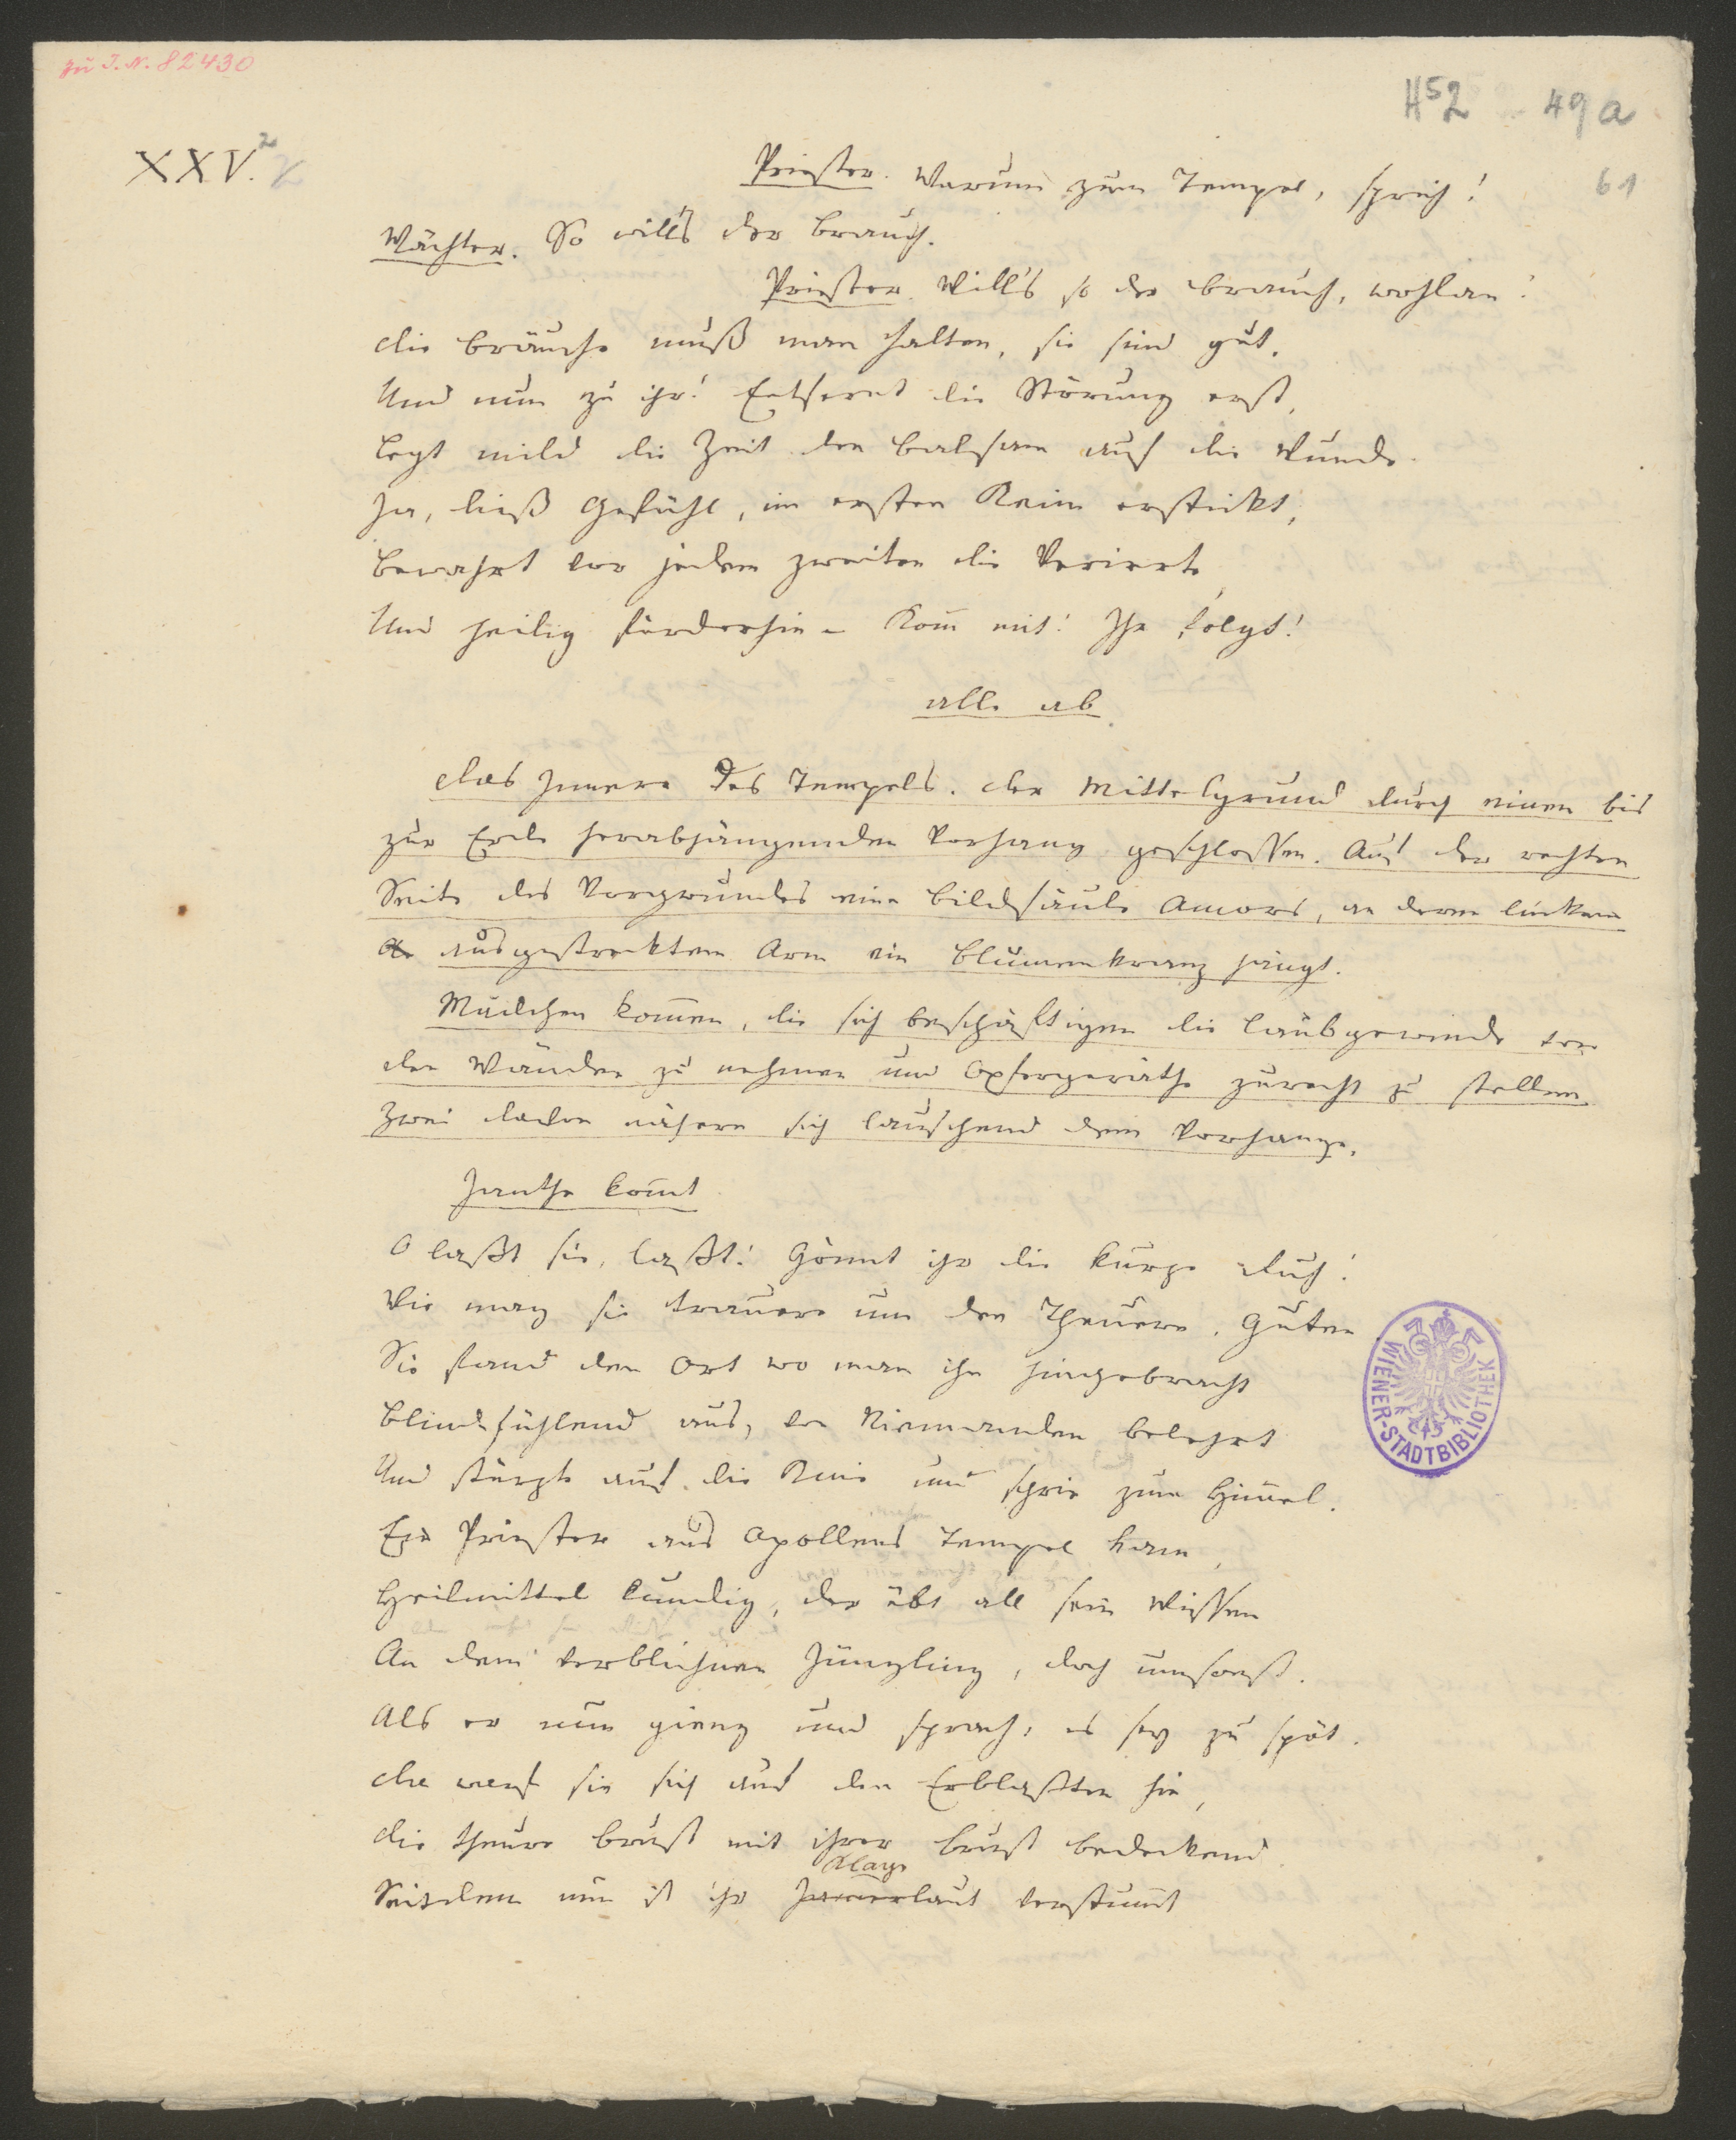 zu I. N. 82430
H52 49a
XXV. 2
61
Priester. Warum zum Tempel, sprich!
Wächter. So will's der Brauch.
Priester. Will's so der Brauch, wohlan!
Die Bräuche muß man halten, sie sind gut.
Und nun zu ihr! Entfernt die Störung erst,
Legt mild die Zeit den Balsam auf die Wunde.
Ja, dieß Gefühl, im ersten Keim erstickt,
Bewahrt vor jedem zweiten die Verirrte
Und heilig fürderhin – Kom̄ mit! Ihr folgt!
alle ab
Das Innere des Tempels. Der Mittelgrund durch einen bis
zur Erde herabhängenden Vorhang geschlossen. Auf der rechten
Seite des Vorgrundes eine Bildsäule Amors, an deren linkem
ausgestrecktem Arm ein Blumenkranz hängt.
Mädchen kom̄en, die sich beschäftigen die Laubgewinde von
den Wänden zu nehmen und Opfergeräthe zurecht zu stellen
Zwei davon nähern sich lauschend dem Vorhange.
Janthe kom̄t
O laßt sie, laßt! Gönnt ihr die kurze Ruh!
Wie mag sie trauern um den Theuern, Guten
Sie fand den Ort wo man ihn hingebracht
Blindfühlend aus, von Niemanden belehrt
Und stürzte auf die Knie und schrie zum Him̄el.
Ein Priester aus Apollens Tempel kam,
Heilmittel kundig, der übt all sein Wissen
An dem verblichnen Jüngling, doch umsonst.
Als er nun gieng und sprach: es sey zu spät.
Da warf sie sich auf den Erblaßten hin,
Die theure Brust mit ihrer Brust bedeckend
Klage
Seitdem nun ist ihr Jam̄erlaut verstum̄t
WIENER-STADTBIBLIOTHEK